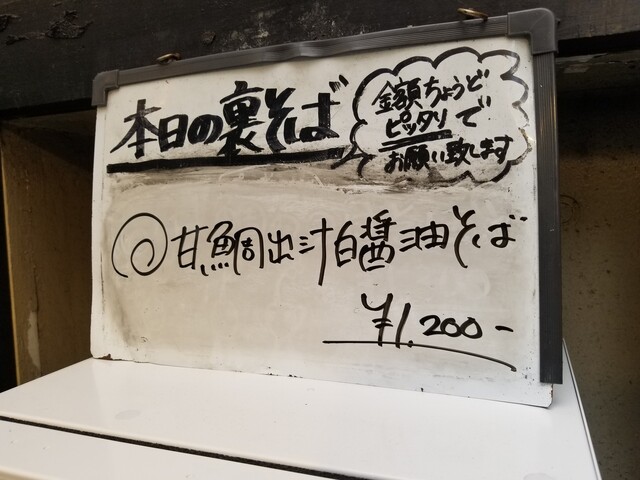 本日の裏そば
金額ちょうど
ピッタリで
お願い致します
甘鯛出汁白醤油そば
¥1,200-